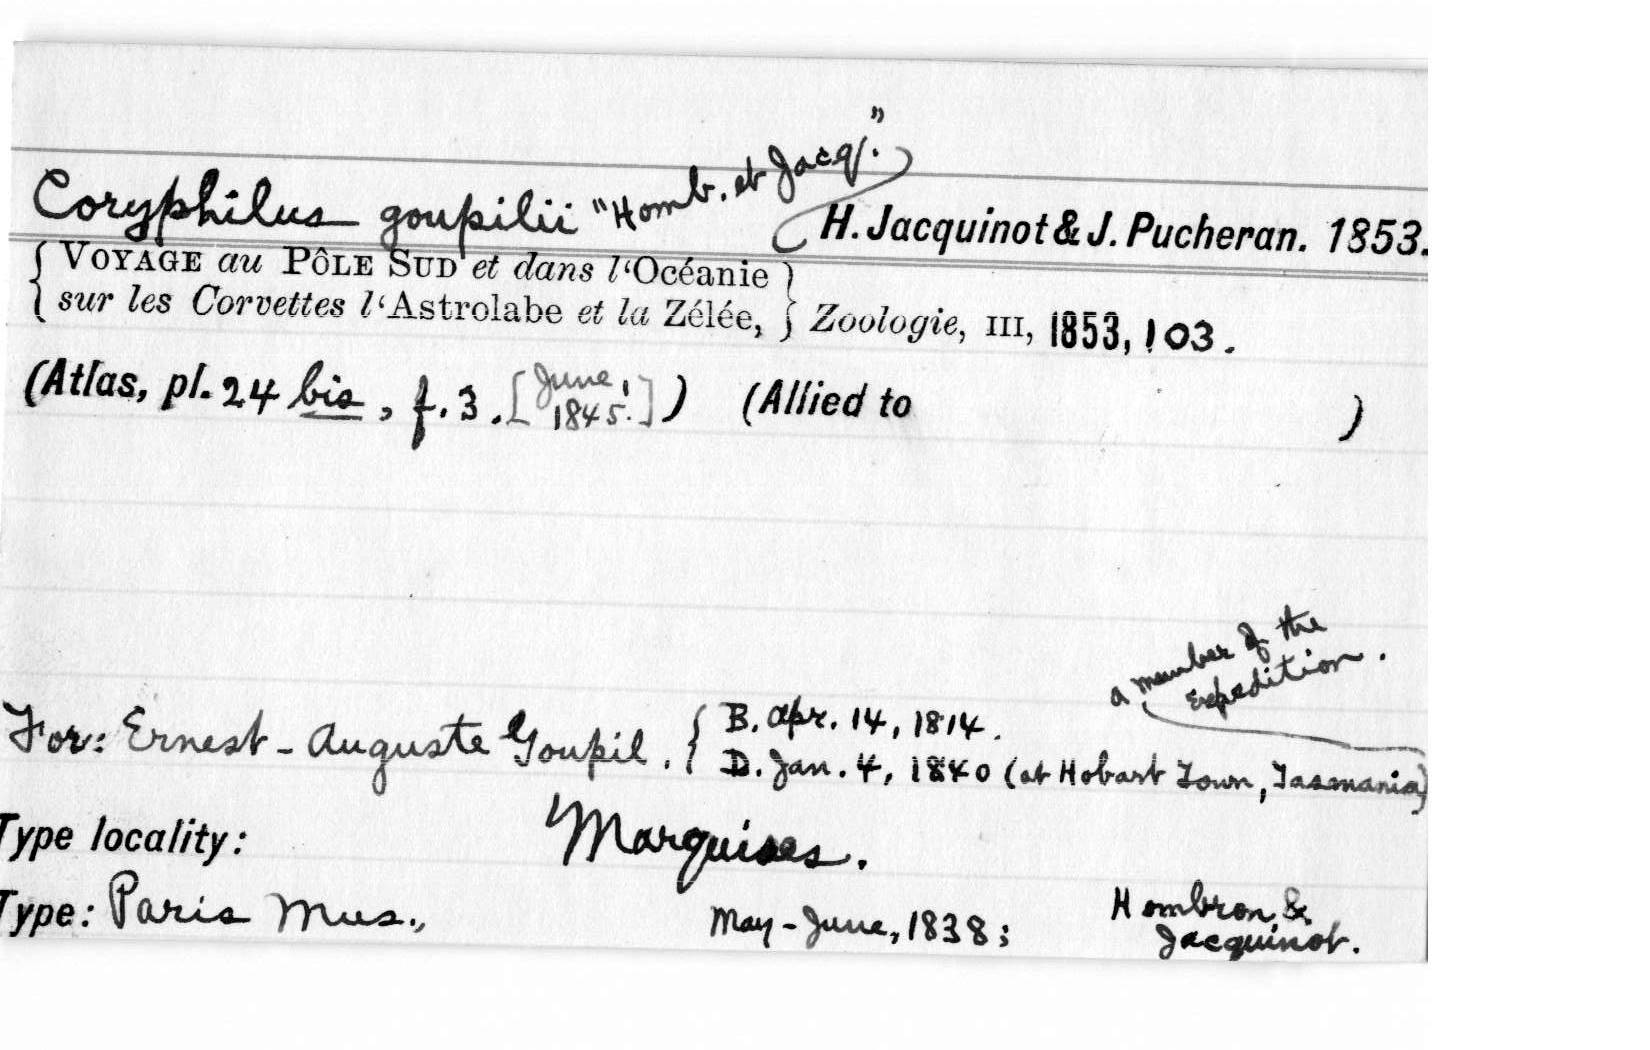 Coryphilus goupilii "Homb. et Jacq." H. Jacquinot & J. Pucheran. 1853.
{ VOYAGE au PÔLE SUD et dans l'Océanie }
{ sur les Corvettes l'Astrolabe et la Zélée, } Zoologie, III, 1853, 103.
(Atlas, pl. 24 bis, f. 3. [June, 1845.]) (Allied to )
a member of the
Expedition.
For: Ernest-Auguste Goupil. { B. Apr. 14, 1814.
D. Jan. 4, 1840 (at Hobart Town, Tasmania)
Type locality: Marquises.
Type: Paris Mus., May-June, 1838; Hombron &
Jacquinot.